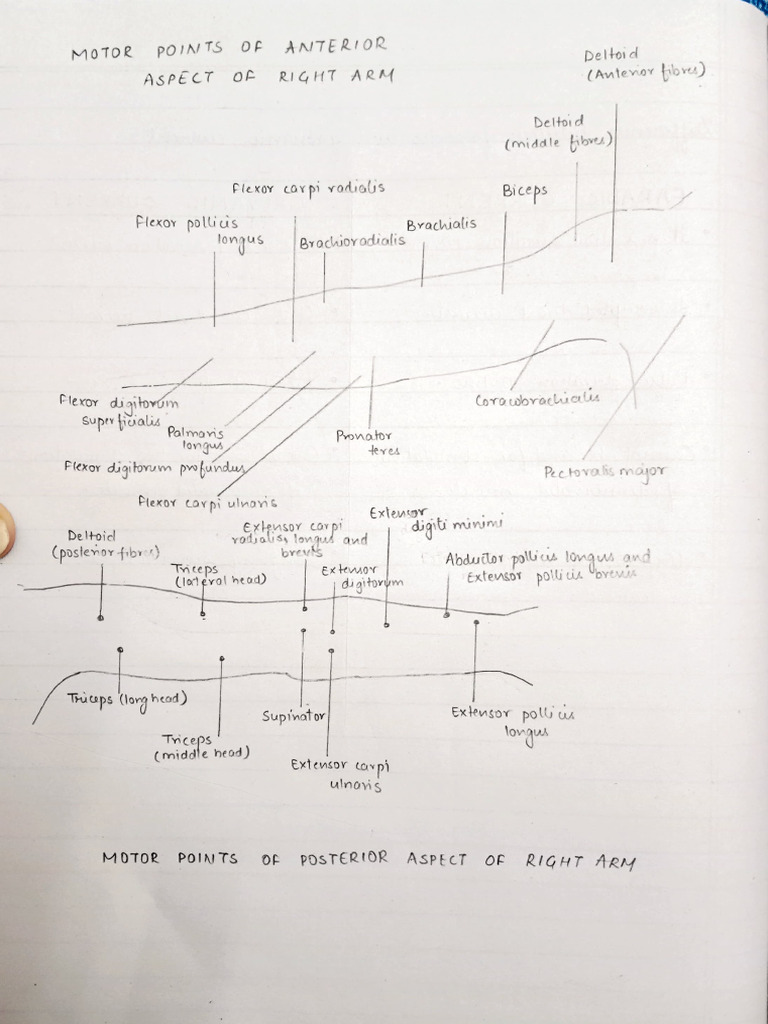 MOTOR POINTS OF ANTERIOR
ASPECT OF RIGHT ARM
Deltoid
(Anterior fibres)
Deltoid
(middle fibres)
Biceps
Brachialis
Flexor carpi radialis
Brachioradialis
Flexor pollicis
longus
Flexor digitorum
superficialis
Palmaris
longus
Flexor digitorum profundus
Flexor carpi ulnaris
Pronator
teres
Coracobrachialis
Pectoralis major
Deltoid
(posterior fibres)
Triceps
(lateral head)
Extensor carpi
radialis, longus and
brevis
Extensor
digitorum
Extensor
digiti minimi
Abductor pollicis longus and
Extensor pollicis brevis
Triceps (long head)
Triceps
(middle head)
Supinator
Extensor carpi
ulnaris
Extensor pollicis
longus
MOTOR POINTS OF POSTERIOR ASPECT OF RIGHT ARM